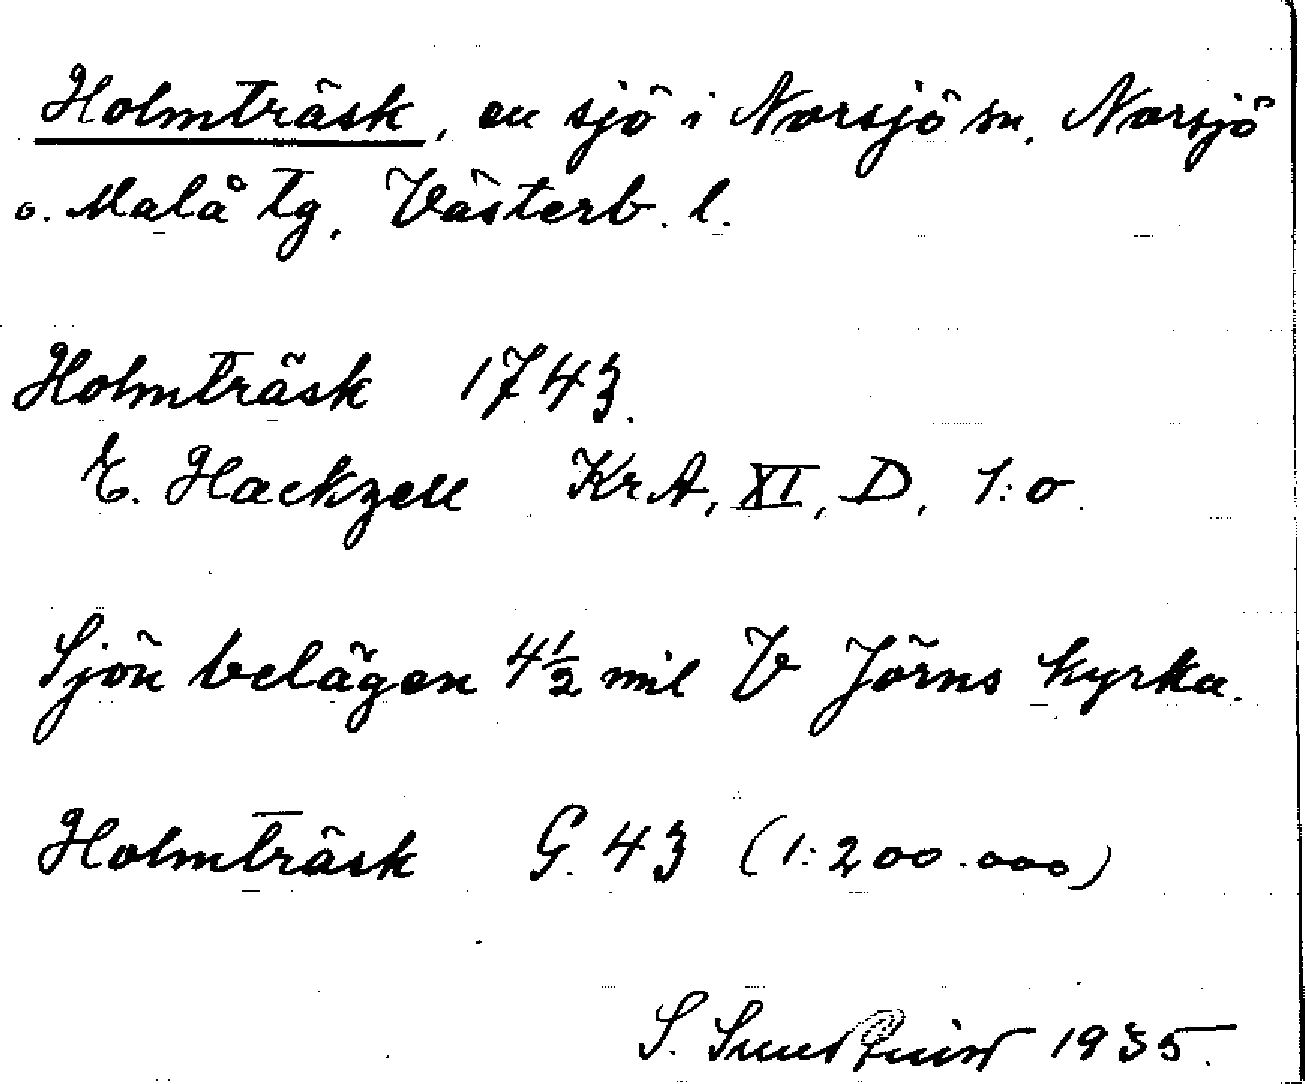 Holmträsk, en sjö i Norsjö sn, Norsjö
o. Malå tg, Västerb. l.
Holmträsk 1743.
E. Hackzell KrA, XI, D, 1:o.
Sjön belägen 4½ mil V Jörns kyrka.
Holmträsk G. 43 (1:200.000)
S. Sundquist 1935.